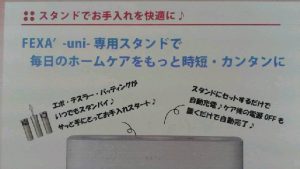 スタンドでお手入れを快適に♪
FEXA' -uni- 専用スタンドで
毎日のホームケアをもっと時短・カンタンに
エポ・テスラー・パッティングが
いつでもスタンバイ♪
サッと手にとってお手入れスタート♪
スタンドにセットするだけで
自動充電♪ケア後の電源OFFも
置くだけで自動完了♪